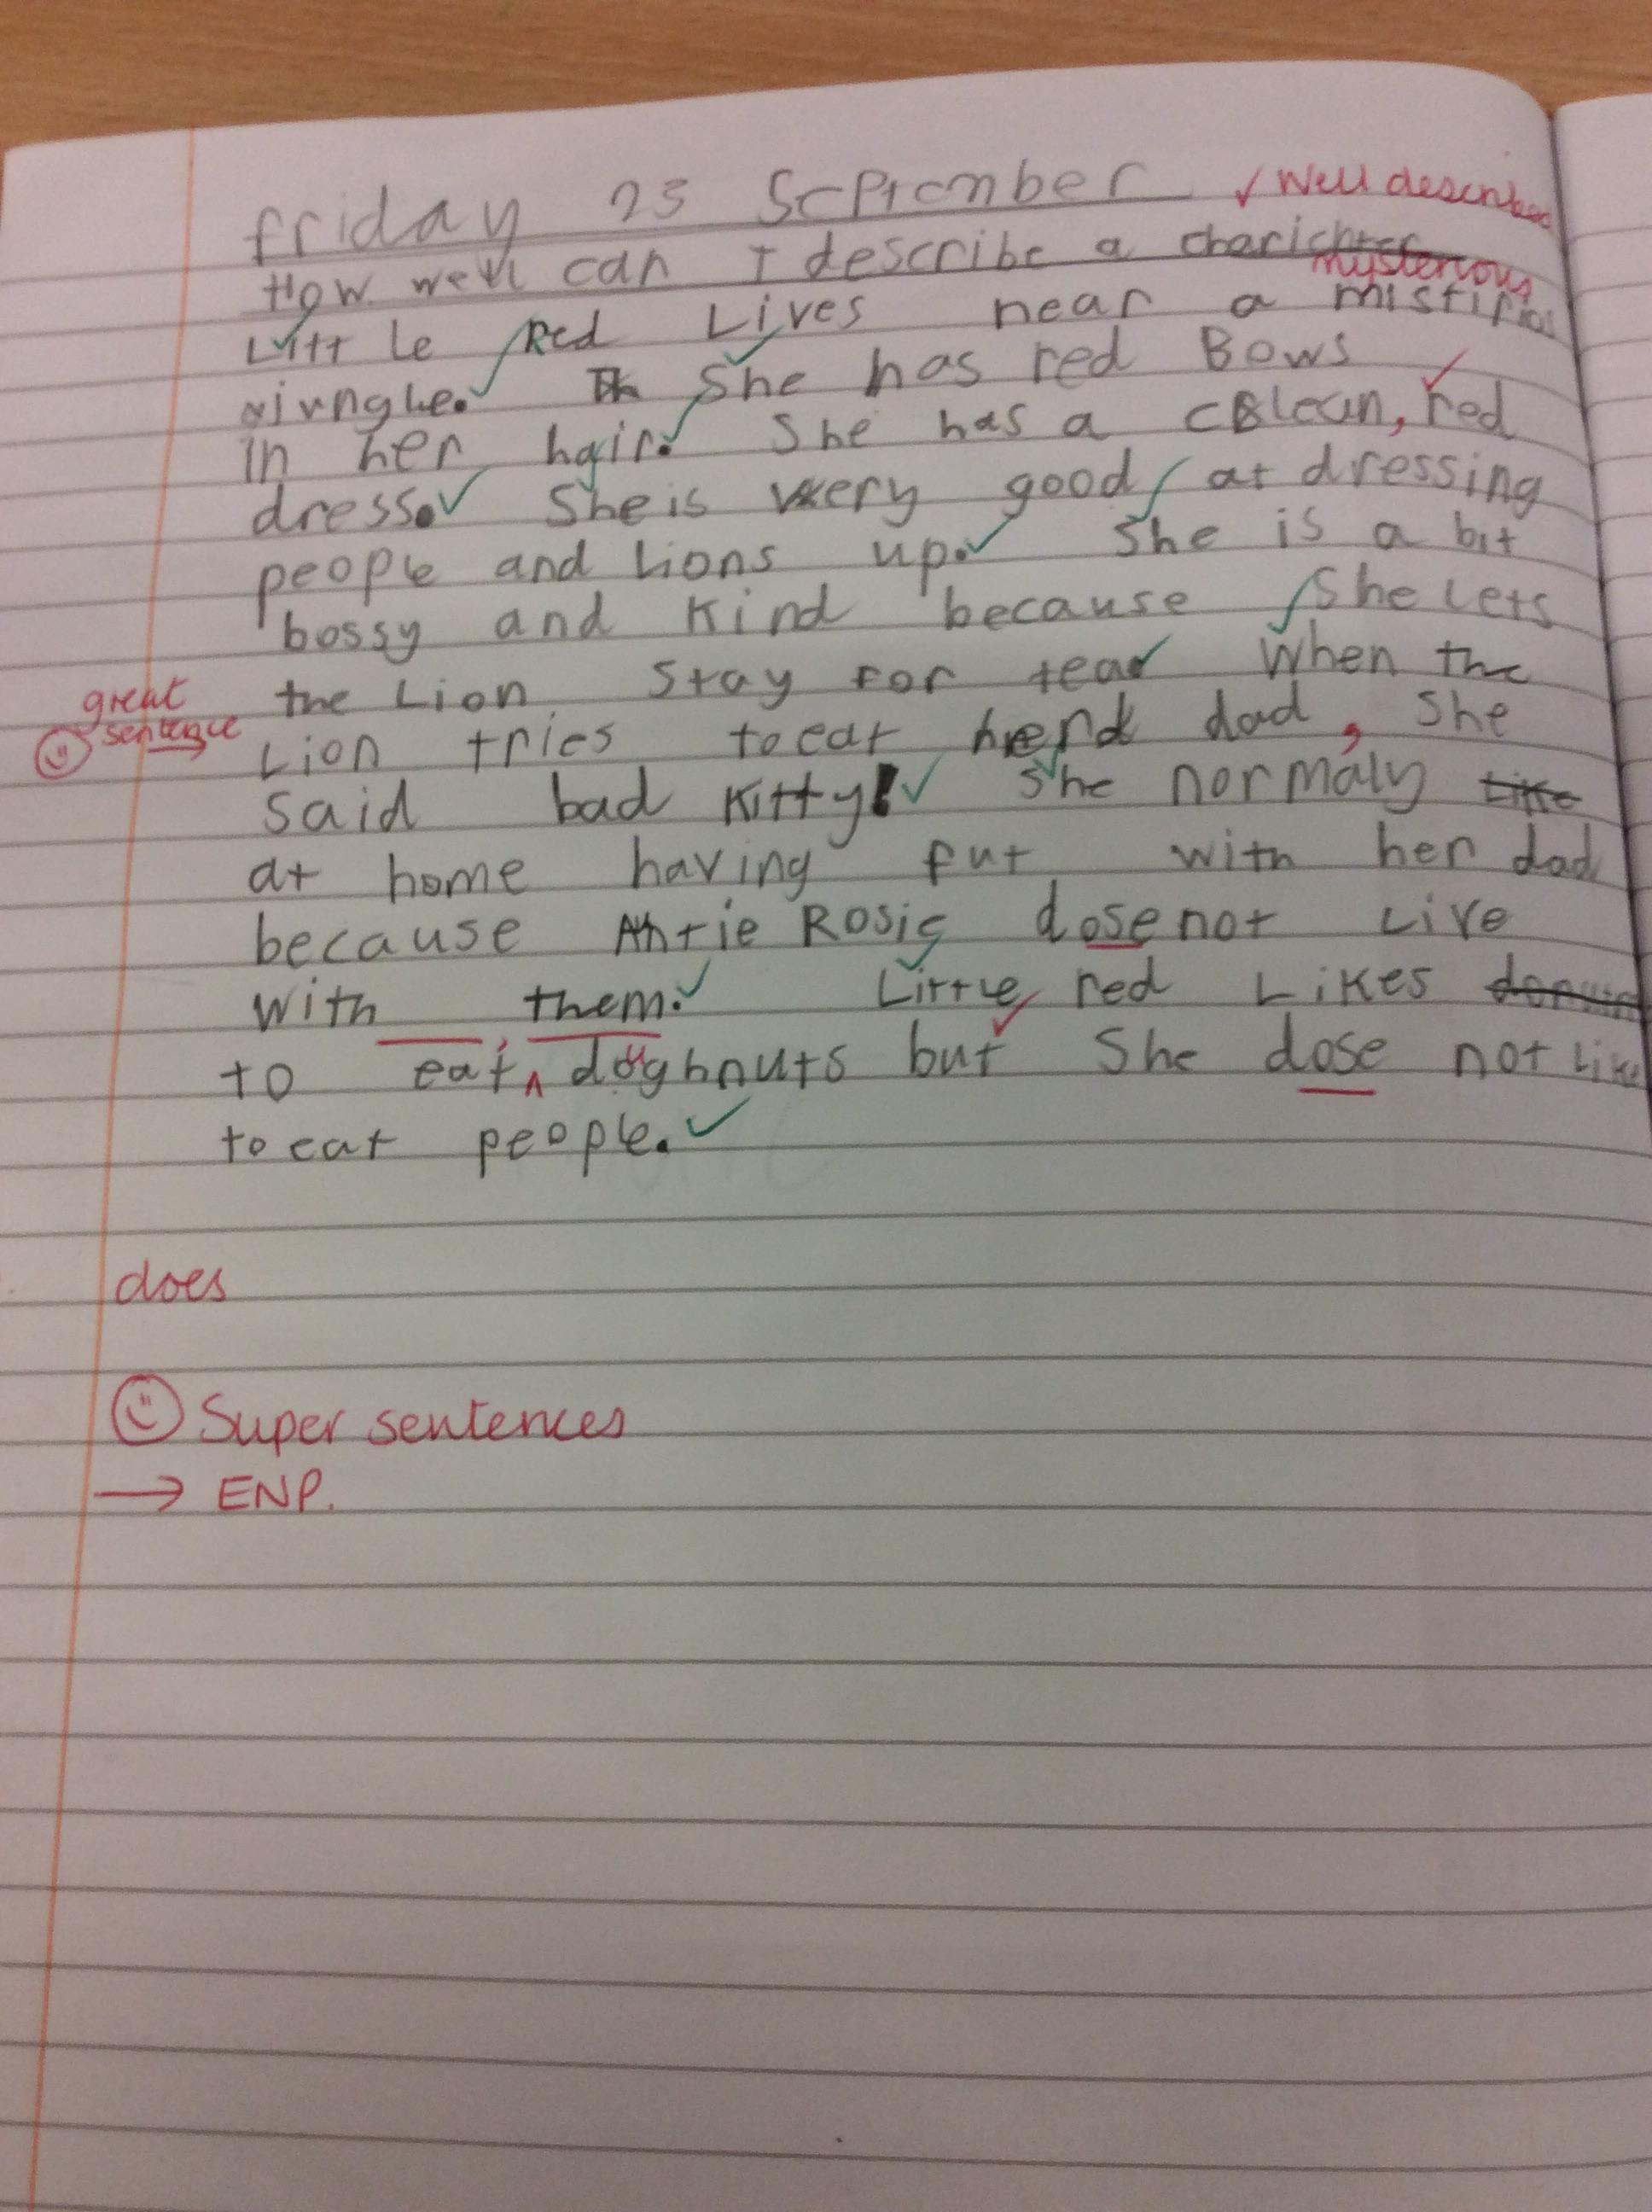 friday 23 September ✓ Well described
How well can I describe a charichter
mysterious
Little Red Lives near a mistirios
jungle. She has red Bows
in her hair. She has a clean, red
dress. She is very good at dressing
people and Lions up. She is a bit
bossy and kind because She Lets
the Lion Stay for tea. When the
great
sentence
Lion tries to eat her dad, She
said bad Kitty! She normaly like
at home having fun with her dad
because Antie Rosie dose not Live
with them. Little red Likes
to eat doughnuts but She dose not Like
to eat people.
does
Super sentences
→ ENP.